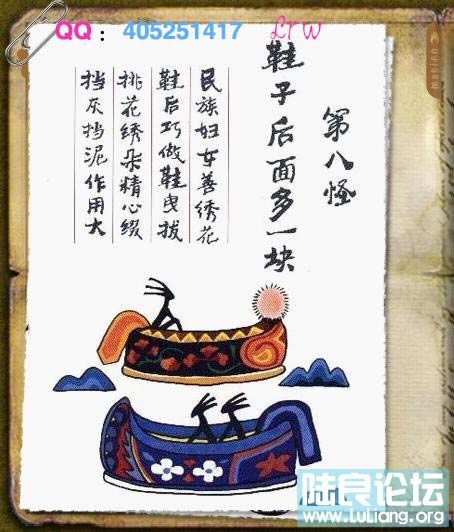 QQ：405251417 Lrw
第八怪
鞋子后面多一块
民族妇女善绣花
鞋后巧做鞋曳拔
挑花绣朵精心缀
挡灰挡泥作用大
陆良论坛
www.LuLiang.org